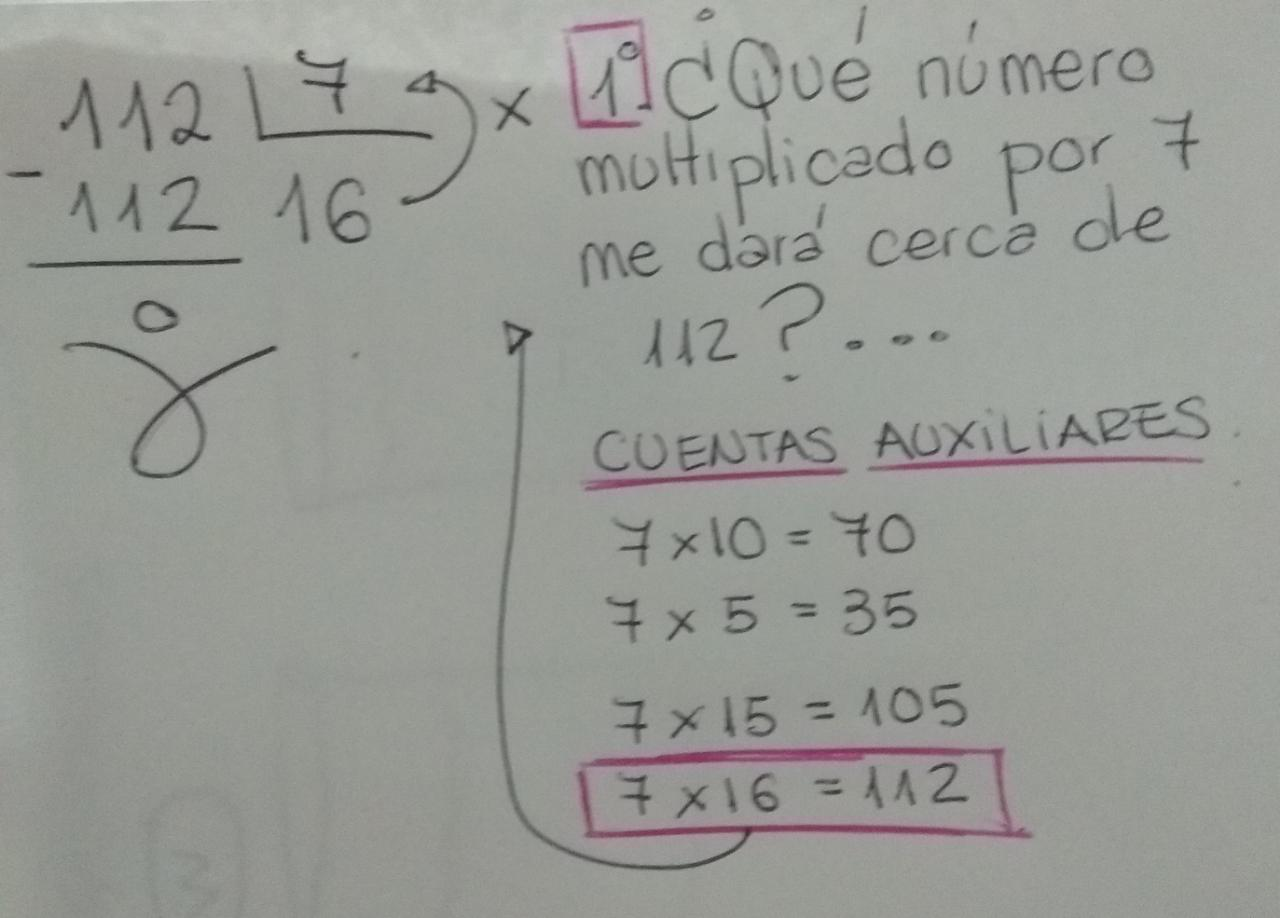 112 7
- 112 16 x
0
1º ¿Qué número
multiplicado por 7
me dará cerca de
112?...
CUENTAS AUXILIARES
7 x 10 = 70
7 x 5 = 35
7 x 15 = 105
7 x 16 = 112